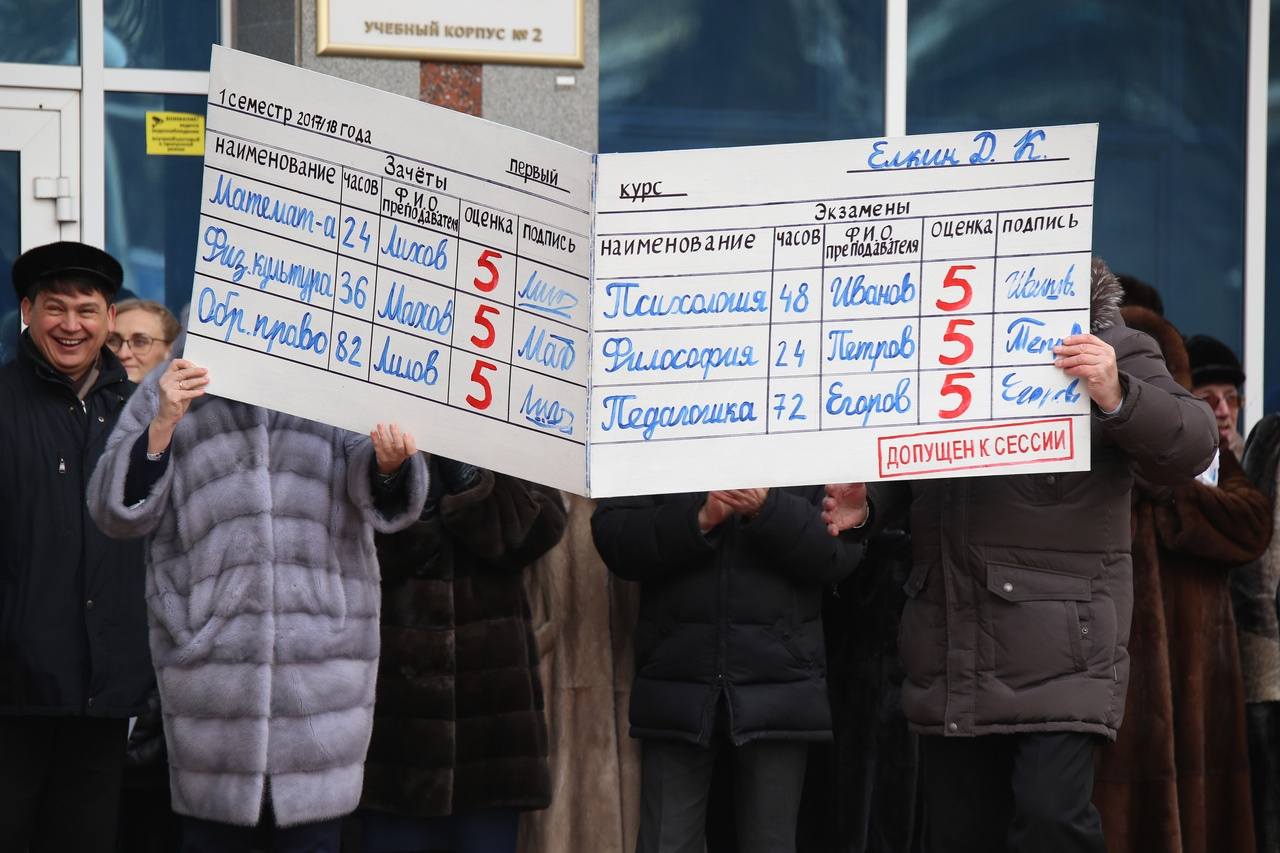 УЧЕБНЫЙ КОРПУС № 2
1 семестр 2017/18 года
первый
Зачёты
наименование часов Ф.И.О преподавателя оценка подпись
Математ-а 24 Лихов 5
Физ.культура 36 Махов 5 Мах
Обр.право 82 Лилов 5
Елкин Д. К.
курс
Экзамены
наименование часов Ф.И.О преподавателя оценка подпись
Психология 48 Иванов 5 Иванов.
Философия 24 Петров 5 Петр
Педагогика 72 Егоров 5 Егоров
ДОПУЩЕН К СЕССИИ